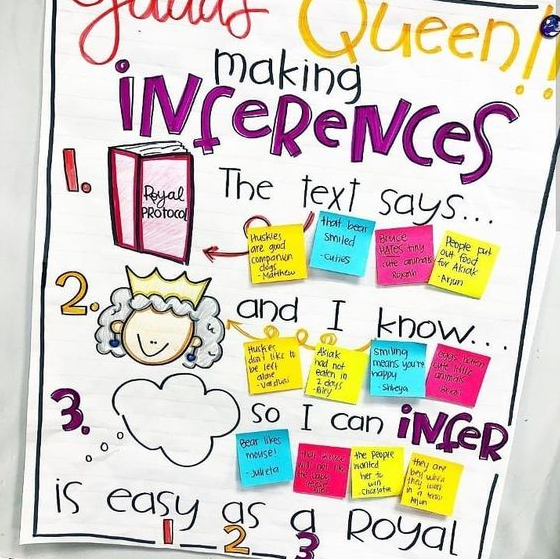 Queen!!
making
INFERENCES
1.
Royal
PROTOCOL
The text says...
Huskies
are good
companion
dogs
- Matthew
that bear
smiled
- Cuties
Bruce
HATES tiny
cute animals
People put
out food
for Akiak
- Arjun
2.
and I know...
Huskies
don't like to
be left
alone
Akiak
had not
eaten in
2 days
- Riley
Smiling
means you're
happy
cute little
animals
3.
so I can INFER
Bear likes
mouse!
- Julieta
the People
wanted
her to
win
- Charlotte
they are
best when
they work
in a team
Arjun
is easy as a Royal
1 2 3